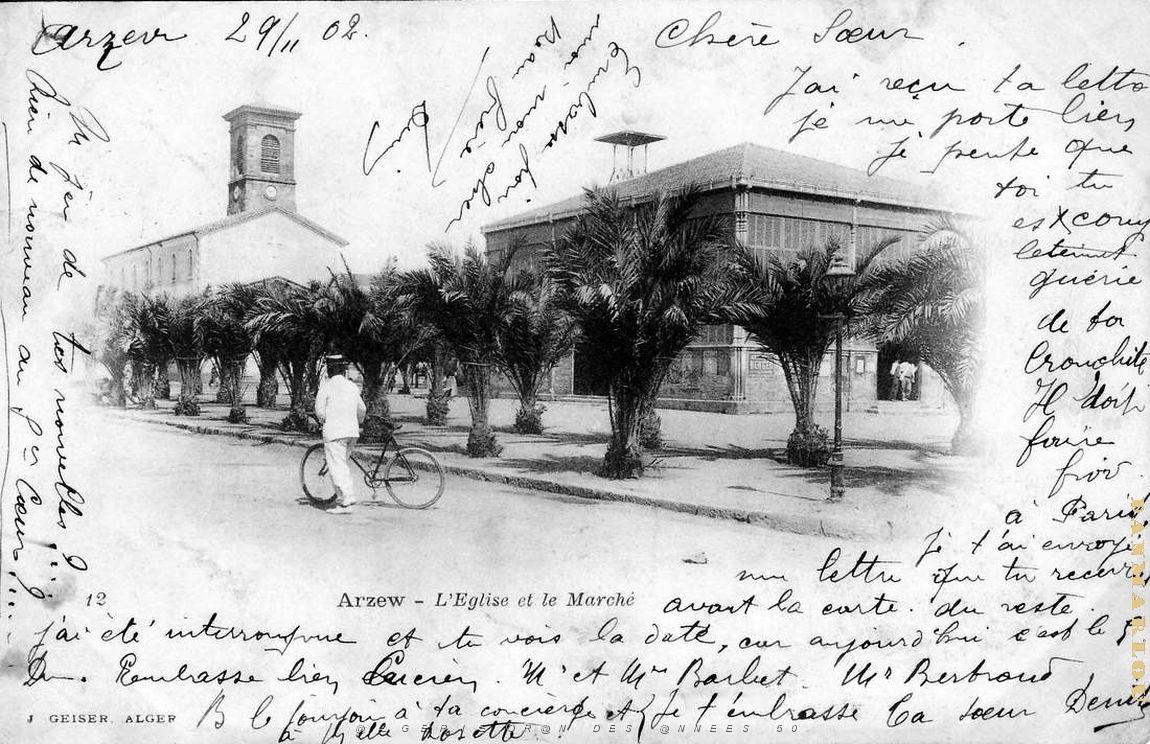 Arzew 29/11 02.
Chère Sœur.
J'ai reçu ta lettre
je me porte bien
Je pense que
toi tu
es com
pletemet
guérie
de ta
bronchite
Il doit
faire
froid
à Paris
je t'ai envoyé
une lettre que tu recevr
avant la carte. du reste
j'ai été interrompue et tu vois la date, car aujourd'hui c'est le
Embrasse bien Lucien. Mr et Mme Barbet. Mr Bertrand
B le bonjour à ta concierge et je t'embrasse Ta sœur Denise
à Melle
Embrasse
mon
mon frère cher
tes nouvelles
bien de nouveau au
Cœur
12
Arzew - L'Eglise et le Marché
J. GEISER, ALGER